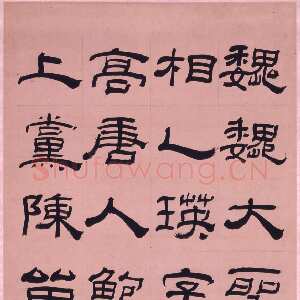 魏魏大聖
相乙瑛字
高唐人鮑
上黨陳留
shufawang.CN